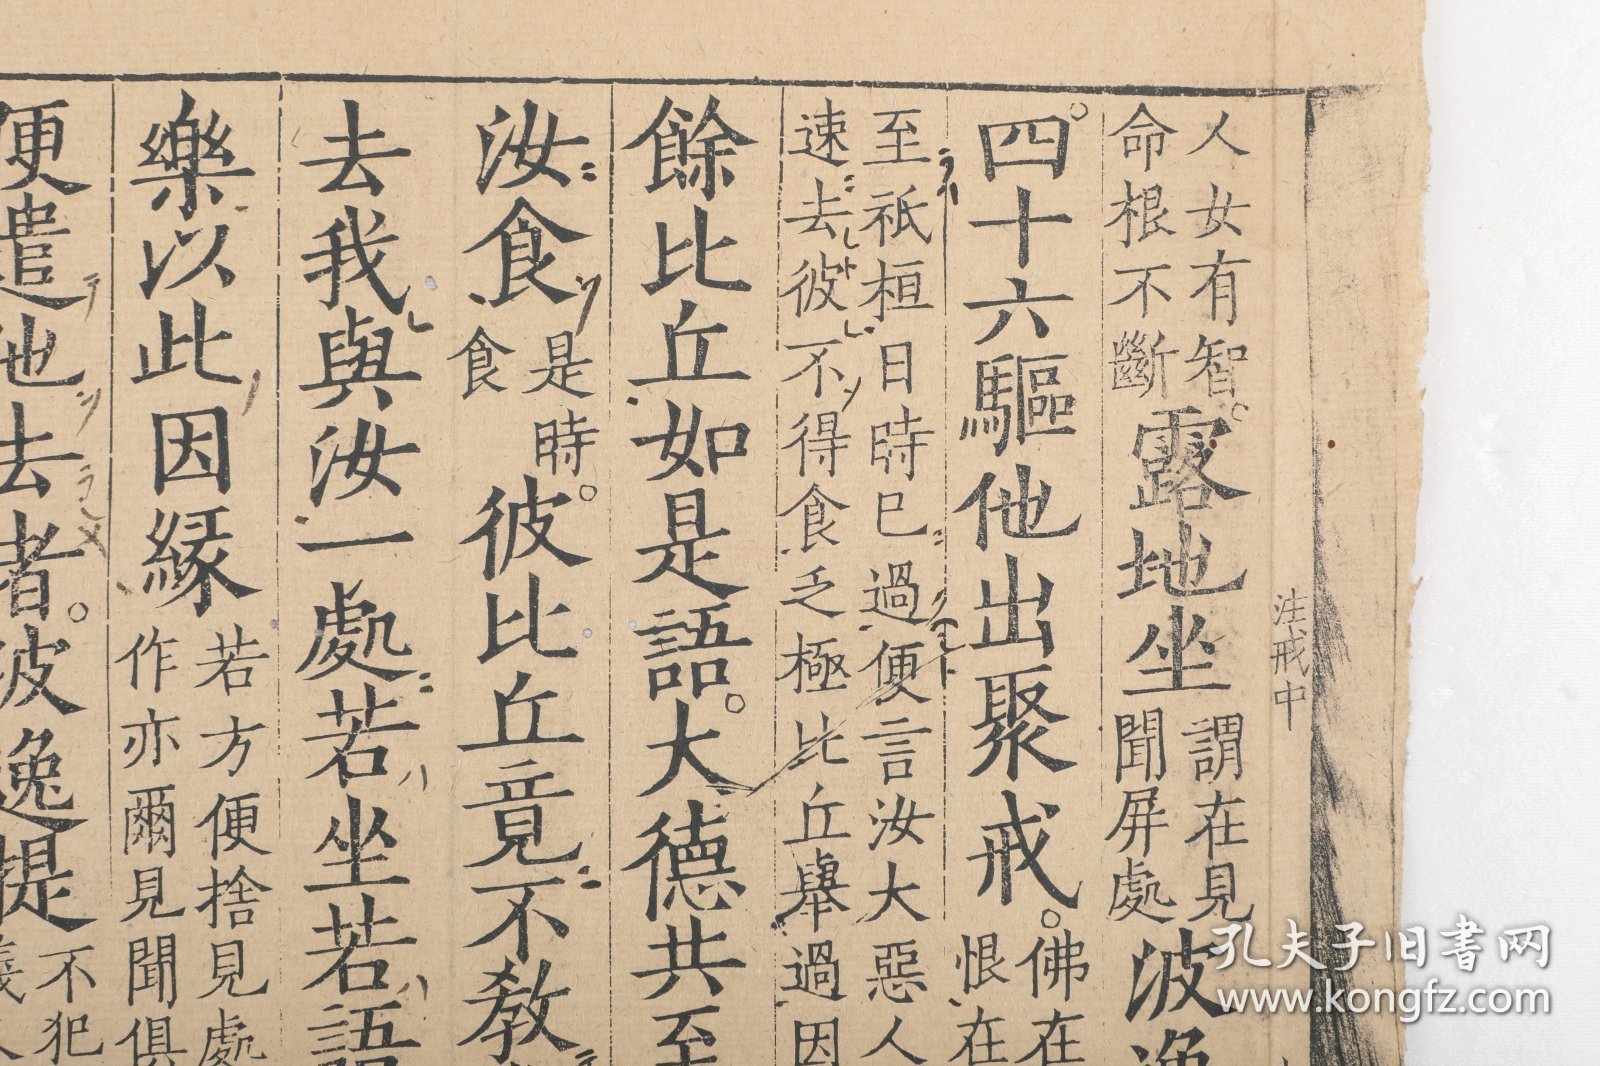 人女有智。命根不斷露地坐謂在見聞屏處波逸
四十六驅他出聚戒。佛在恨在
至祇桓日時已過便言汝大惡人速去彼不得食乏極比丘舉過因
餘比丘如是語。大德共至
汝食是時。食彼比丘竟不教
去我與汝一處若坐若語
樂以此因緣若方便捨見處作亦爾見聞俱
便遣他去者。波逸提不犯
注戒中
孔夫子旧書网
www.kongfz.com